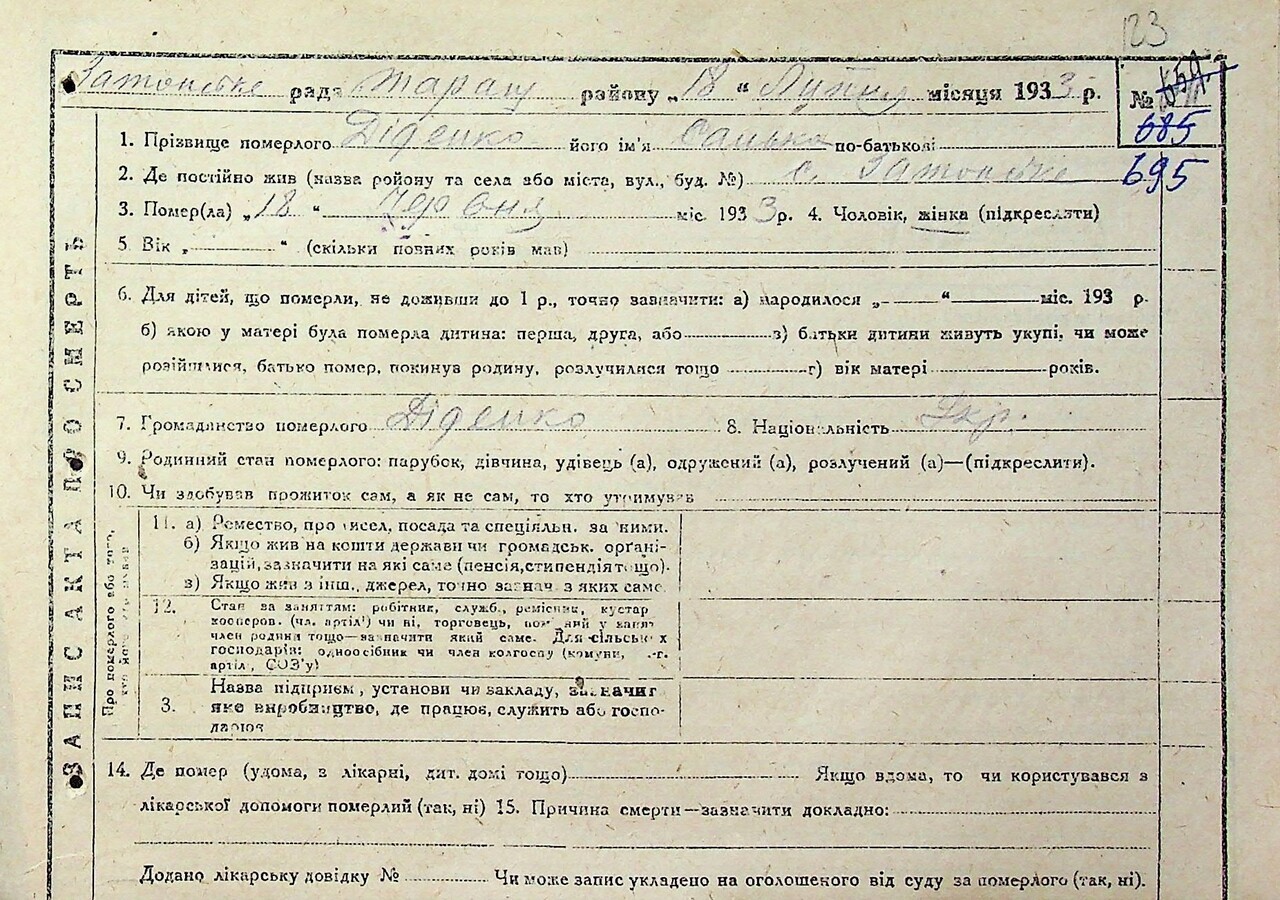 123
Затонське рада Таращ району „18“ Липня місяця 1933 р.
№
685
695
1. Прізвище померлого Діденко його ім'я Санька по-батькові
2. Де постійно жив (назва району та села або міста, вул., буд. №) с. Затонське
3. Помер(ла) „18“ Червня міс. 1933 р. 4. Чоловік, жінка (підкреслити)
5. Вік „ “ (скільки повних років мав)
6. Для дітей, що померли, не доживши до 1 р., точно зазначити: а) народилося „ “ міс. 193 р.
б) якою у матері була померла дитина: перша, друга, або в) батьки дитини живуть укупі, чи може
розійшлися, батько помер, покинув родину, розлучилися тощо г) вік матері років.
7. Громадянство померлого Діденко 8. Національність Укр.
9. Родинний стан померлого: парубок, дівчина, удівець (а), одружений (а), розлучений (а)—(підкреслити).
10. Чи здобував прожиток сам, а як не сам, то хто утримував
ЗАПИС АКТА ПРО СМЕРТЬ
Про померлого або того,
хто його утримував
11. а) Ремество, промисел, посада та спеціяльн. за ними.
б) Якщо жив на кошти держави чи громадськ. орґані-
зацій, зазначити на які саме (пенсія, стипендія тощо).
в) Якщо жив з інш., джерел, точно зазнач. з яких саме
12. Стан за заняттям: робітник, служб., ремісник, кустар
кооперов. (чл. артілі) чи ні, торговець, член родини тощо—зазначити який саме. Для сільських
господарів: одноосібник чи член колгоспу (комуни, с.-г.
артіл., СОЗ'у)
Назва підприєм, установи чи закладу, зазначит
3. яке виробництво, де працює, служить або госпо-
дарює
14. Де помер (удома, в лікарні, дит. домі тощо) Якщо вдома, то чи користувався з
лікарської допомоги померлий (так, ні) 15. Причина смерти—зазначити докладно:
Додано лікарську довідку № Чи може запис укладено на оголошеного від суду за померлого (так, ні).